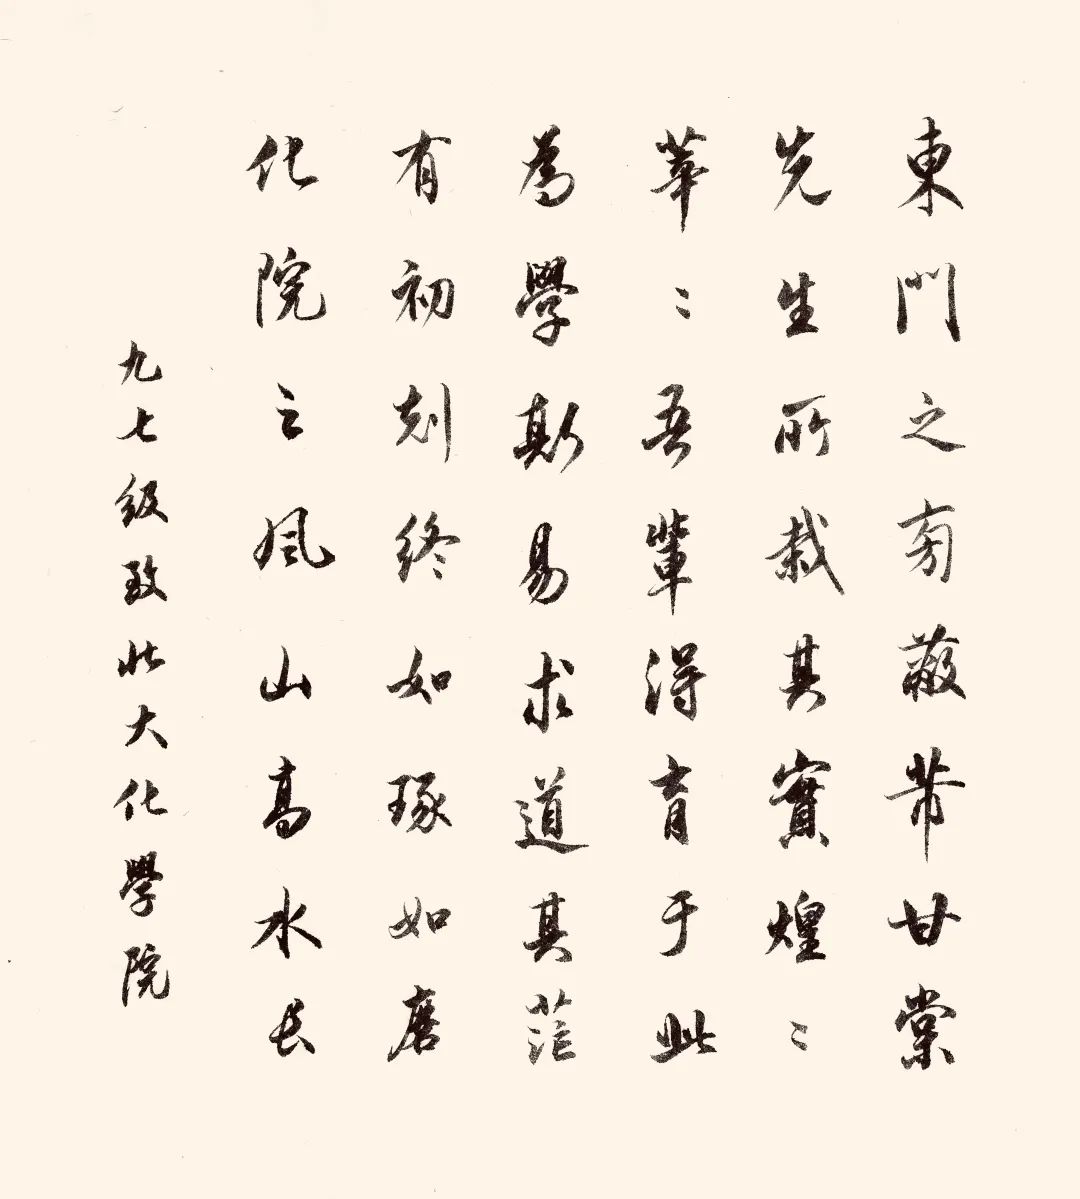 東門之旁蔽芾甘棠
先生所栽其實煌〻
莘〻吾輩得育于此
為學斯易求道其茫
有初剋終如琢如磨
化院之風山高水長
九七級致北大化學院